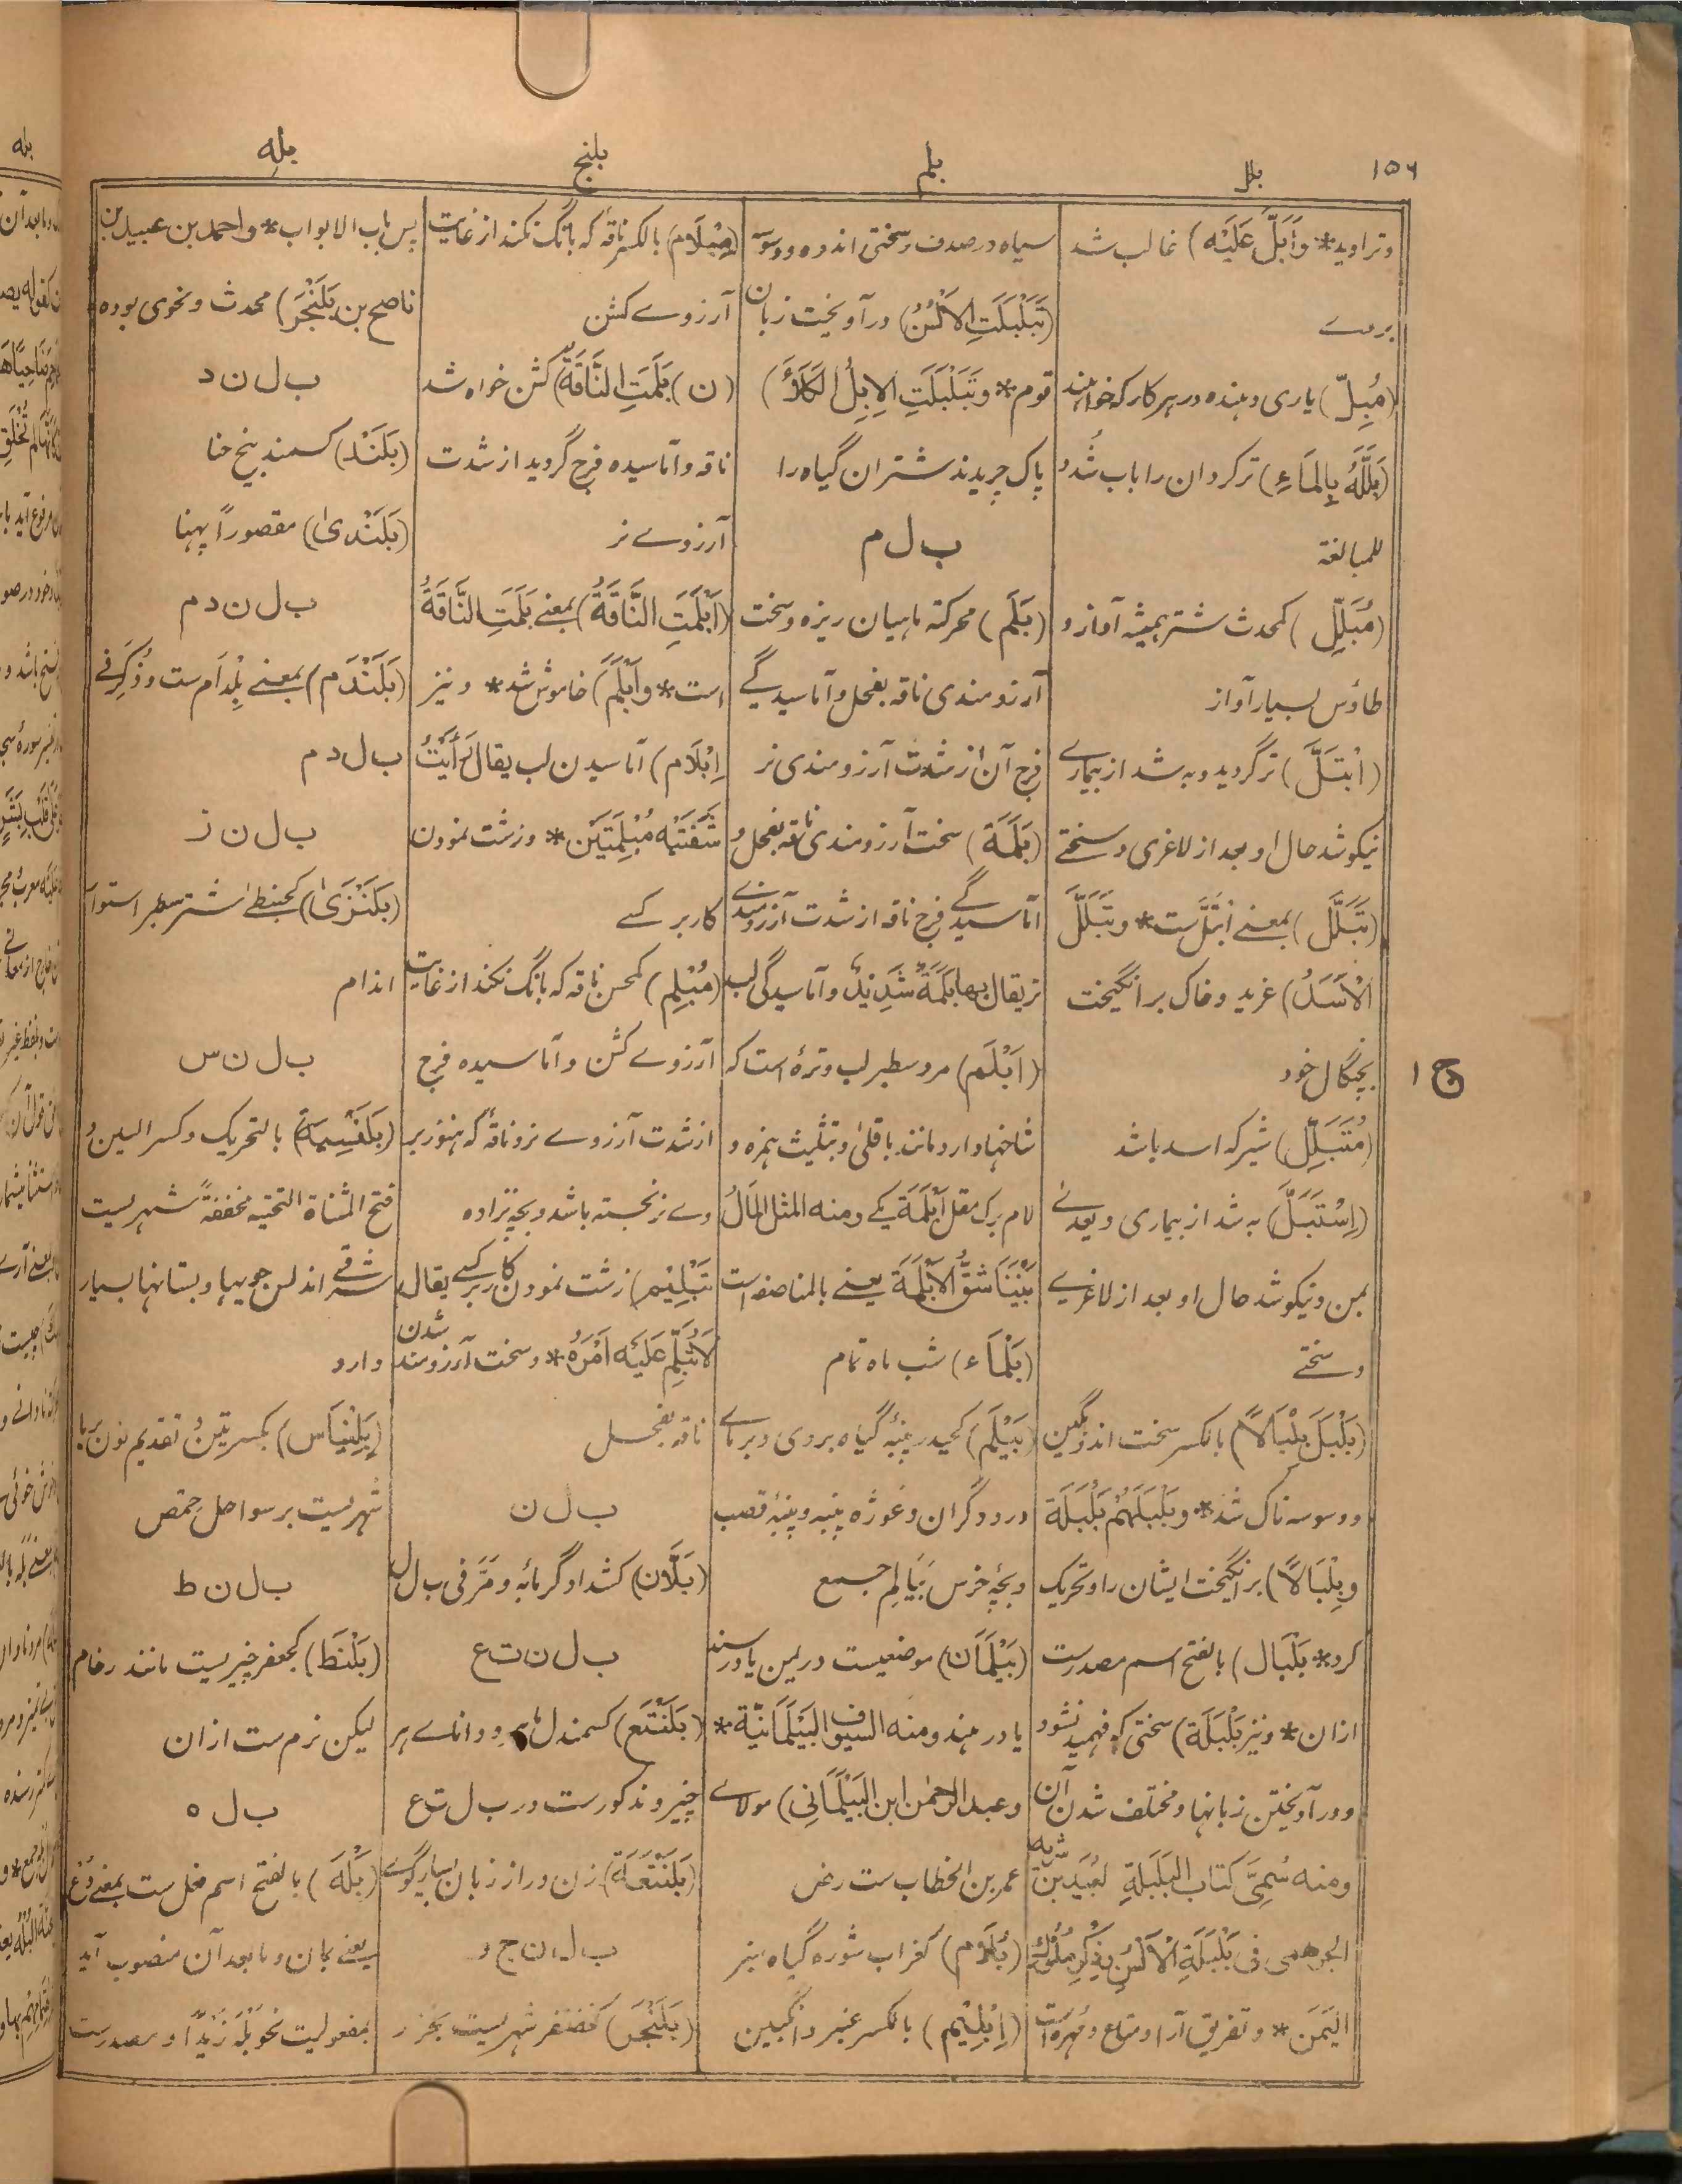 ۱۵۶
بلل
بلم
بلنج
بله
وتراوید* وَأَبَلَّ عَلَیْهِ) غالب شد
برسے
(مُبِلّ) یاری دهنده در هر کار که خواهند
(بَلَّلَهُ بِالمَاءِ) تر کرد آن را بآب شُدِّدَ
للمبالغة
(مُبَلِّل) کمحدث شتر همیشه آواز و
طاؤس بسیار آواز
(اِبْتَلَّ) تر گردید و به شد از بیمارے
نیکو شد حال او بعد از لاغری و سختے
(تَبَلَّلَ) بمعنے اِبْتَلَّ ست* وتَبَلَّلَ
الْاَسَدُ) غرید و خاک بر انگیخت
بچنگال خود
(مُتَبَلِّل) شیر که اسد باشد
(اِسْتَبَلَّ) به شد از بیماری و یعدے
بمن و نیکو شد حال او بعد از لاغری
و سختے
(بَلْبَلَ بِلْبَالًا) بالکسر سخت اندوهگین
و وسوسه ناک شد* وبَلْبَلَهُمْ بَلْبَلَة
وبِلْبَالًا) بر انگیخت ایشان را و تحریک
کرد* بَلْبَال) بالفتح اسم مصدرست
ازان* و نیز بَلْبَلَة) سختی که فهمیده نشود
و در آویختن زبانها و مختلف شدن آن
ومنه سُمِّیَ کتاب البَلْبَلَةِ لعُبَیْد بن شریه
الجرهمی فی بَلْبَلَةِ الْاَلْسُنِ بِذِکْرِ مُلُوْکِ
الیَمَن* و تفریق آرا و متاع و مهره است
سیاه در صدف و سختی اندوه و وسوسه
(تَبَلْبَلَتِ الاَلْسُنُ) در آویخت زبان
قوم* وتَبَلْبَلَتِ الاِبِلُ الکَلَأَ)
پاک چریدند شتران گیاه را
ب ل م
(بَلَم) محرکة ماهیان ریزه و سخت
آرزومندی ناقه بفحل و آماسیدگے
فرج آن از شدت آرزومندی نر
(بَلَمَة) سخت آرزومندی ناقه بفحل و
آماسیدگے فرج ناقه از شدت آرزومندے
نر یقال بها بَلَمَةٌ شَدِیْدَةٌ و آماسیدگی لب
(اَبْلَم) مرد سطبر لب و ترهٔ است که
شاخها دارد مانند باقلی و بتثلیث همزه و
لام برگ مقل اَبْلَمَة یکے ومنه المثل المَالُ
بَیْنَنَا شَقَّ الاَبْلَمَةِ یعنے بالمناصفه است
(بَلْمَاء) شب ماه تمام
(بَیْلَم) کحیدر پنبهٔ گیاه بردی و برمائے
درودگران و غوزه پنبه و پنبهٔ قصب
و بچهٔ خرس بَیَالِم جمع
(بَیْلَمَان) موضعیست در یمن یا در سند
یا در هند ومنه السیوف البَیْلَمَانِیَّة*
وعبدالرحمن ابن البَیْلَمَانِی) مولاے
عمر بن الخطاب ست رض
(بُلَّام) کغراب شوره گیاه سبز
(اِبْلِیْم) بالکسر عنبر و انگبین
(مِبْلَام) بالکسر ناقهٔ که بانگ نکند از غایت
آرزوے کشن
(ن) بَلَمَتِ النَّاقَةُ) کشن خواه شد
ناقه و آماسیده فرج گردید از شدت
آرزوے نر
(اَبْلَمَتِ النَّاقَةُ) بمعنے بَلَمَتِ النَّاقَةُ
است* واَبْلَمَ) خاموش شد* و نیز
اِبْلَام) آماسیدن لب یقال رَأَیْتُ
شَفَتَیْهِ مُبْلِمَتَیْن* و زشت نمودن
کار بر کسے
(مُبْلِم) کمحسن ناقه که بانگ نکند از غایت
آرزوے کشن و آماسیده فرج
از شدت آرزوے نر و ناقهٔ که هنوز بر
وے نر نجسته باشد و بچه نزاده
تَبْلِیْم) زشت نمودن کار بر کسے یقال
لَاتُبَلِّمْ عَلَیْهِ اَمْرَهُ* و سخت آرزومند شدن
ناقه بفحل
ب ل ن
(بَلَّان) کشداد گرمابه ومَرَّ فی ب ل ل
ب ل ن ت ع
(بَلَنْتَع) کسمندل و داناے هر
چیز و مذکورست در ب ل ت ع
(بَلَنْتَعَة) زن دراز زبان بسیار گوے
ب ل ن ج ر
(بَلَنْجَر) کغضنفر شهریست بخزر
پس باب الابواب* واحمد بن عبید بن
ناصح بن بَلَنْجَر) محدث و نحوی بوده
ب ل ن د
(بَلَنْد) کسمند بیخ حنا
(بَلَنْدیٰ) مقصوراً پهنا
ب ل ن د م
(بَلَنْدَم) بمعنے بِلْدَام ست وذُکِرَ فے
ب ل د م
ب ل ن ز
(بَلَنْزَیٰ) کحبنطےٰ شتر سطبر استوار
اندام
ب ل ن س
(بَلَنْسِیَة) بالتحریک وکسر السین و
فتح المثناة التحتیه مخففةً شهریست
شرقے اندلس جویها و بستانها بسیار
دارد
(بِلِنْیَاس) بکسرتین و تقدیم نون بر یا
شهریست بر سواحل حمص
ب ل ن ط
(بَلْنَط) کجعفر چیزیست مانند رخام
لیکن نرم ست ازان
ب ل ه
(بَلْهَ) بالفتح اسم فعل ست بمعنے دَعْ
یعنے بمان و مابعد آن منصوب آید
بمفعولیت نحو بَلْهَ زَیْدًا و مصدرست
ج ۱
بله